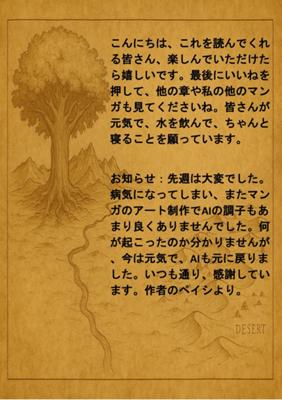 こんにちは、これを読んでくれ
る皆さん、楽しんでいただけた
ら嬉しいです。最後にいいねを
押して、他の章や私の他のマン
ガも見てくださいね。皆さんが
元気で、水を飲んで、ちゃんと
寝ることを願っています。
お知らせ：先週は大変でした。
病気になってしまい、またマン
ガのアート制作でAIの調子もあ
まり良くありませんでした。何
が起こったのか分かりませんが
、今は元気で、AIも元に戻りま
した。いつも通り、感謝してい
ます。作者のベイシより。
DESERT